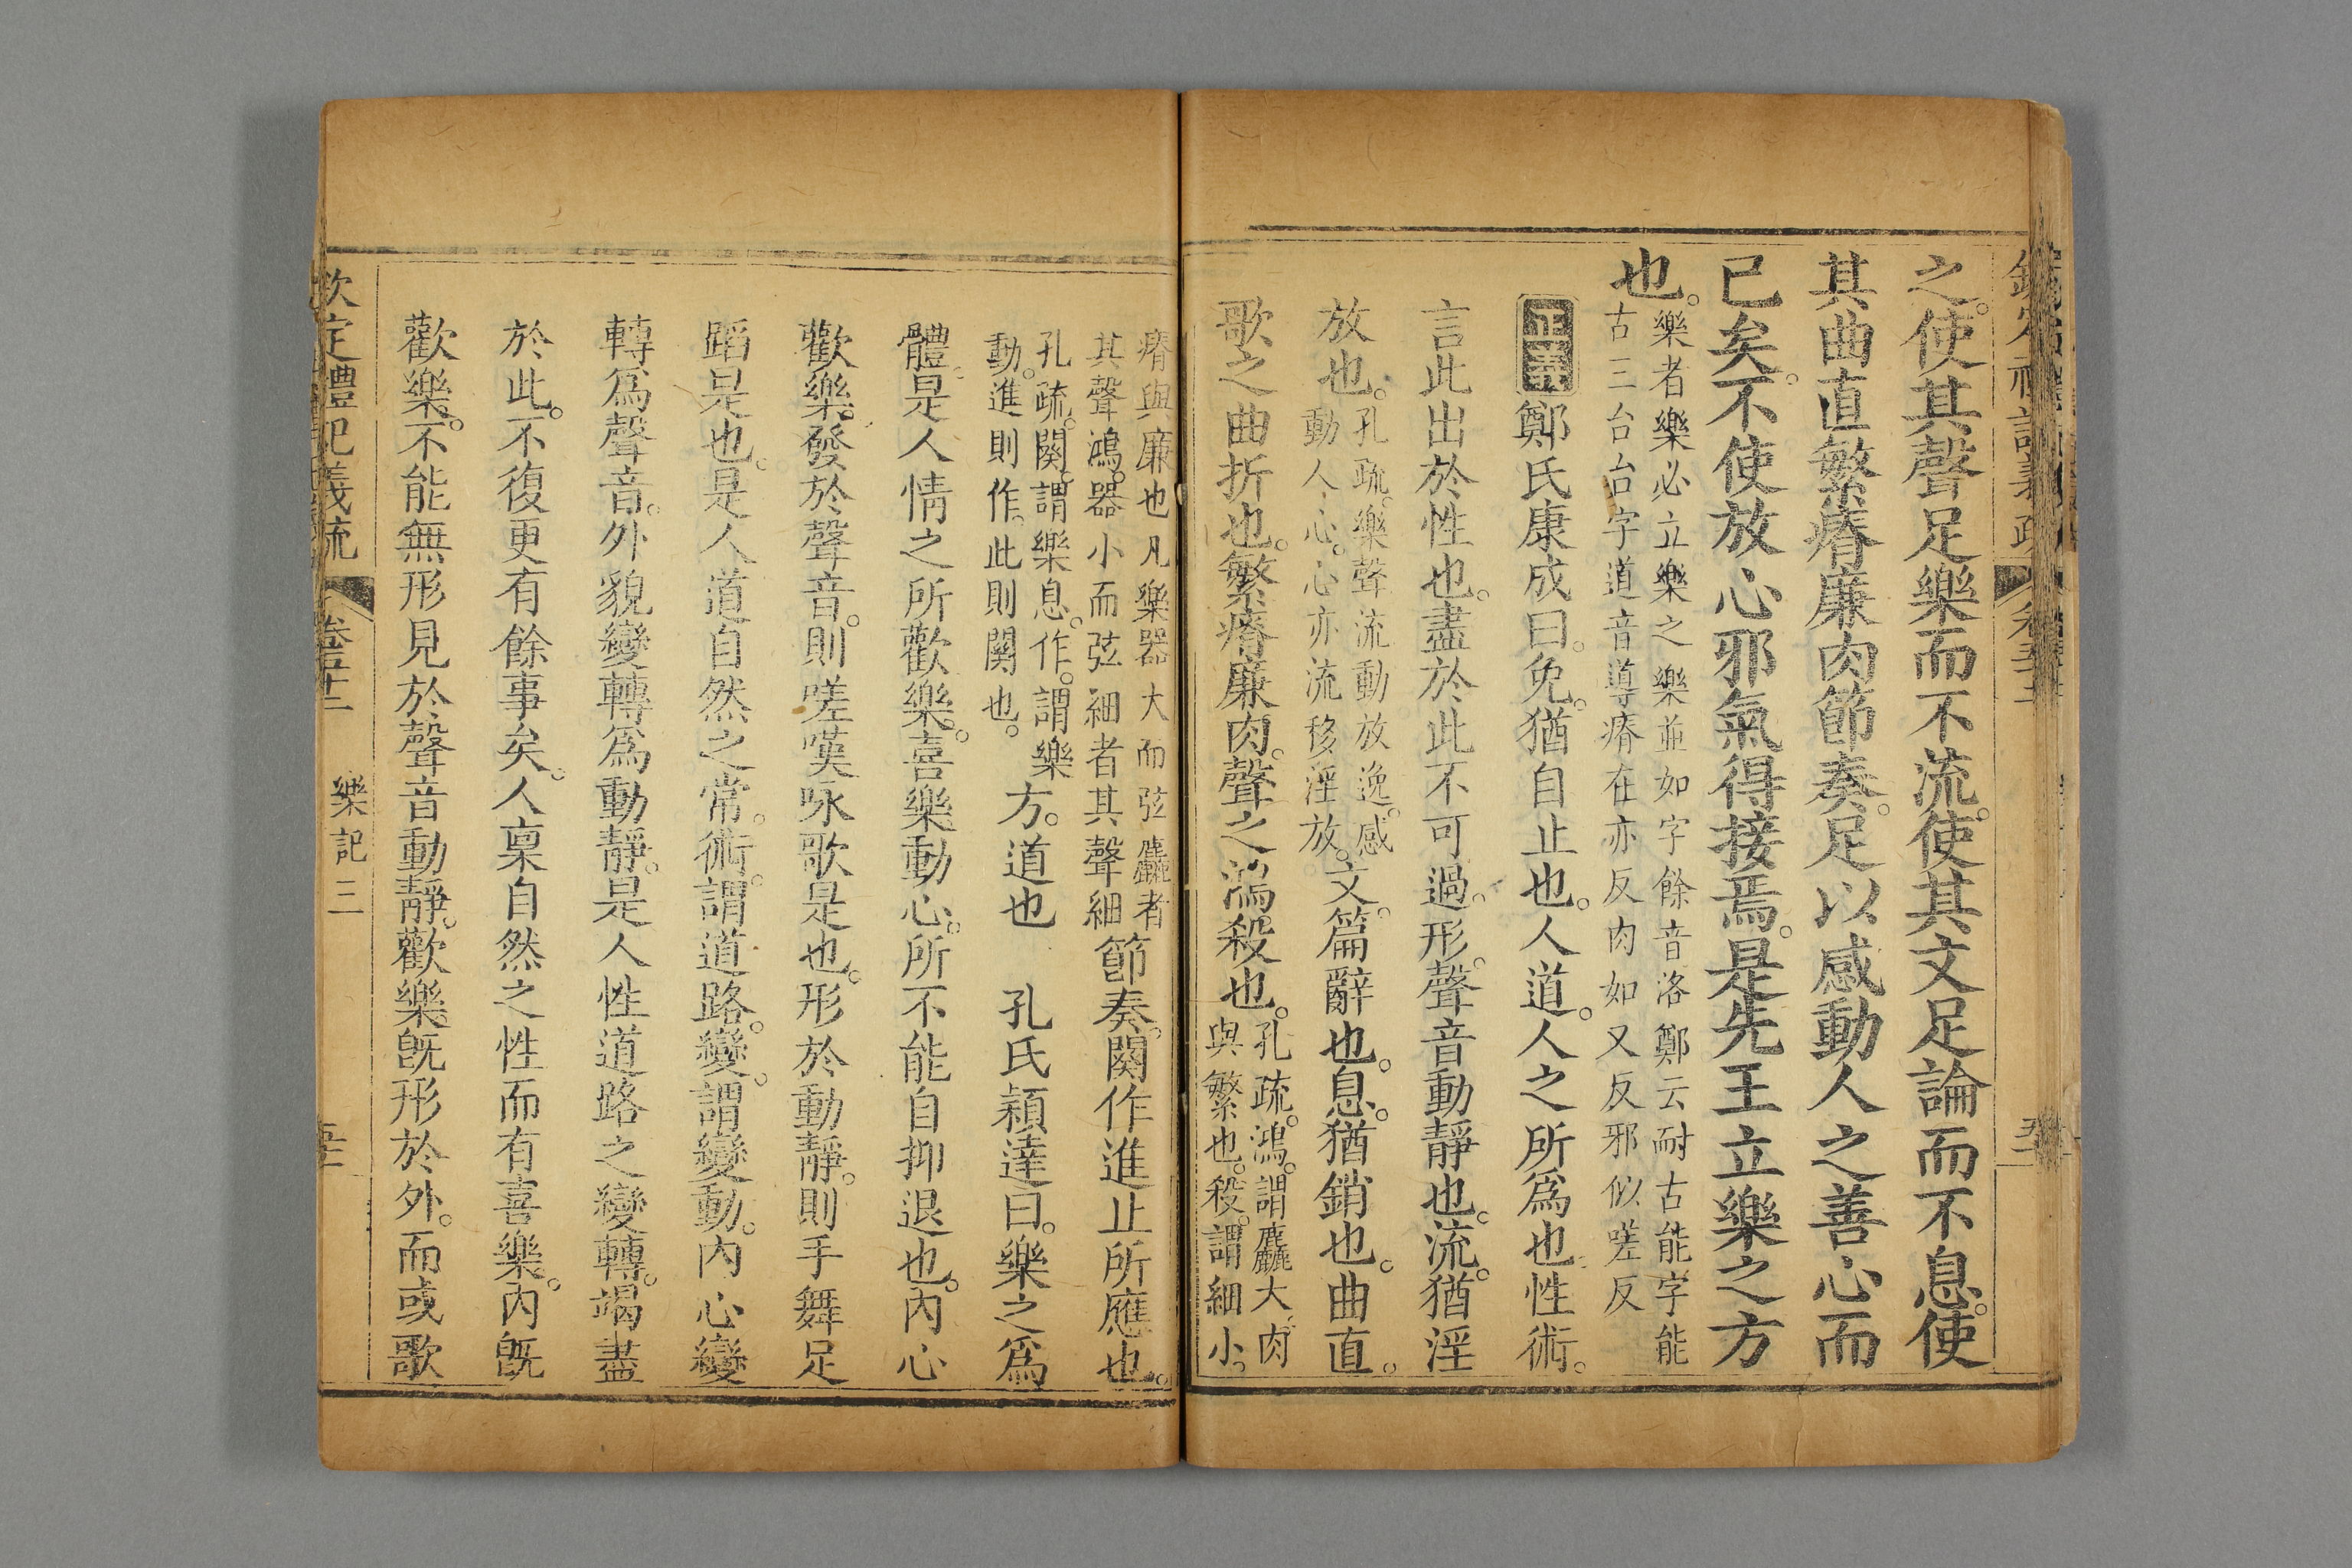 之。使其聲足樂而不流。使其文足論而不息。使
其曲直繁瘠廉肉節奏。足以感動人之善心而
已矣。不使放心邪氣得接焉。是先王立樂之方
也。
樂者樂必立樂之樂並如字餘音洛鄭云耐古能字能
古三台台字道音導瘠在亦反肉如又反邪似嗟反
正義鄭氏康成曰。免。猶自止也。人道。人之所爲也性術。
言此出於性也。盡於此不可過。形。聲音動靜也。流。猶淫
放也。
孔疏。樂聲流動放逸。感
動人心。心亦流移淫放。
文。篇辭也。息。猶銷也。曲直。
歌之曲折也。繁瘠廉肉。聲之鴻殺也。
孔疏。鴻。謂麤大。肉
與繁也。殺。謂細小。
瘠與廉也凡樂器大而弦麤者
其聲鴻。器小而弦細者其聲細
節奏。闋作進止所應也。
孔疏。闋謂樂息。作。謂樂
動。進則作。此則闋也。
方。道也 孔氏穎達曰。樂之爲
體。是人情之所歡樂。喜樂動心。所不能自抑退也。內心
歡樂。發於聲音。則嗟嘆咏歌是也。形於動靜。則手舞足
蹈是也。是人道自然之常。術。謂道路。變。謂變動。內心變
轉。爲聲音。外貌變轉爲動靜。是人性道路之變轉。竭盡
於此。不復更有餘事矣。人稟自然之性而有喜樂。內旣
歡樂。不能無形見於聲音動靜。歡樂旣形於外。而或歌
欽定禮記義疏 卷五十二 樂記三